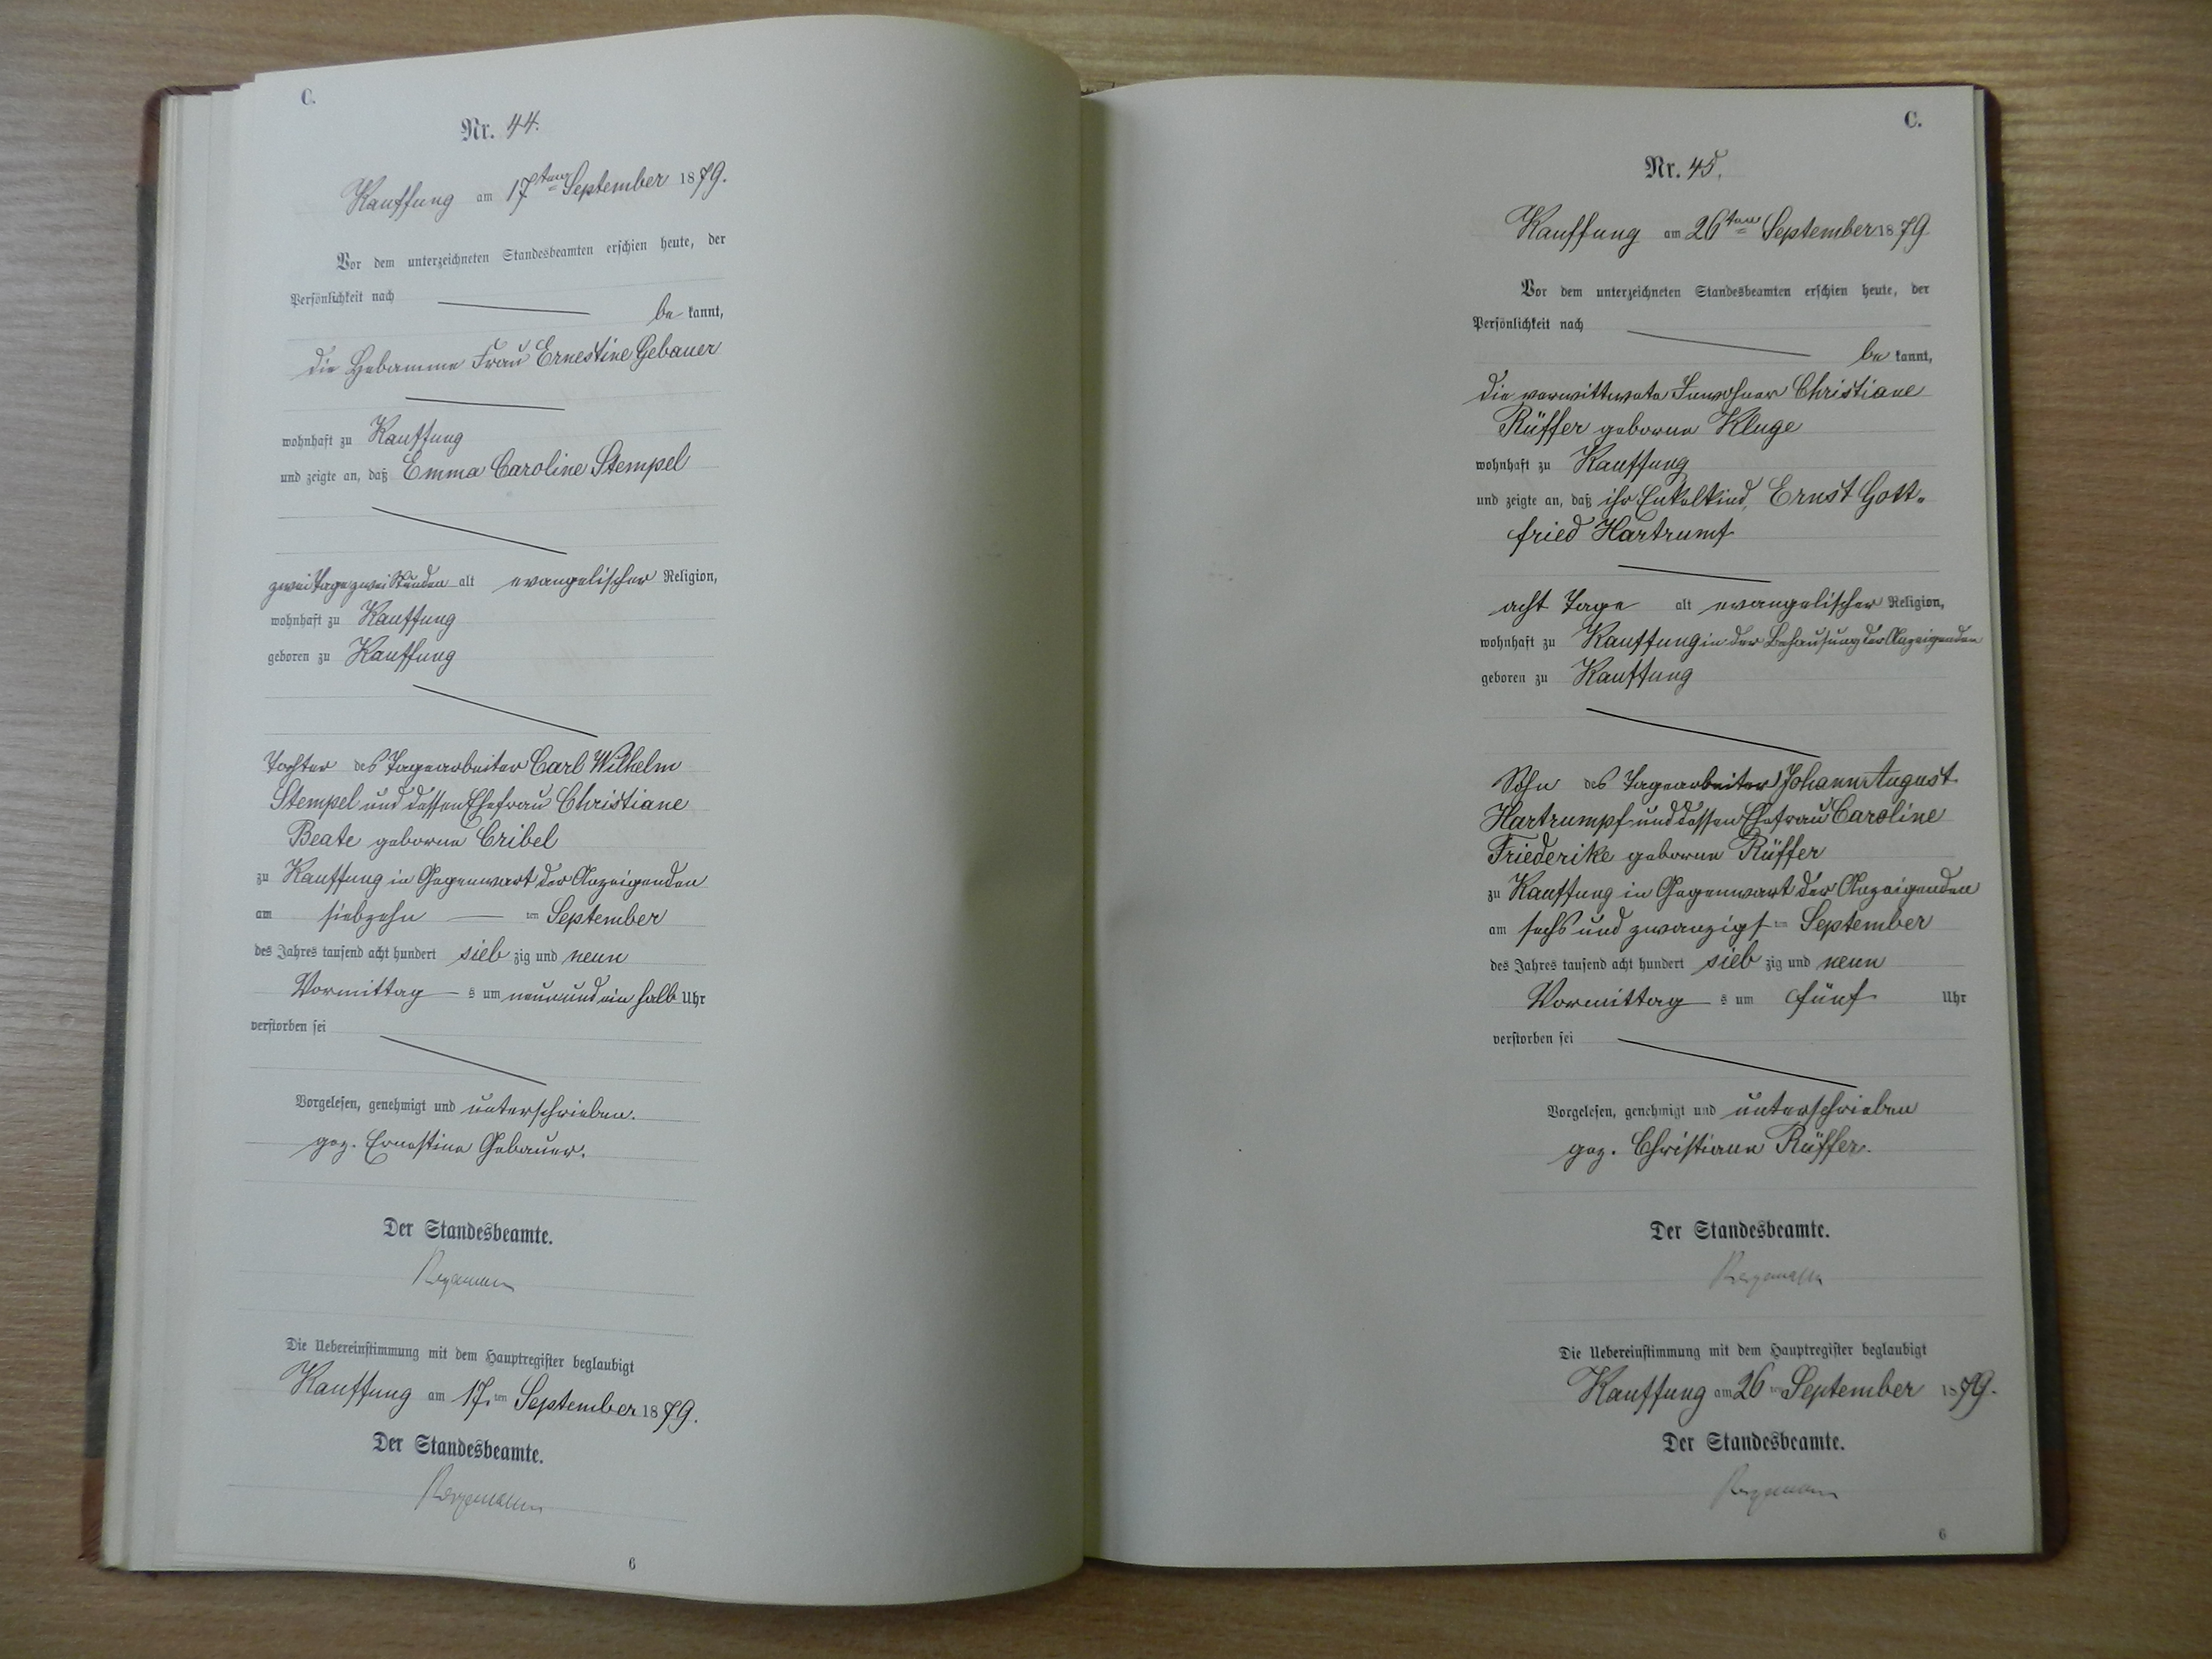 C.
Nr. 44.
Kauffung am 17ten September 1879.
Vor dem unterzeichneten Standesbeamten erschien heute, der
Persönlichkeit nach
be kannt,
die Hebamme Frau Ernestine Gebauer
wohnhaft zu Kauffung
und zeigte an, daß Emma Caroline Stempel
zwei Tage zwei Stunden alt evangelischer Religion,
wohnhaft zu Kauffung
geboren zu Kauffung
Tochter des Tagearbeiter Carl Wilhelm
Stempel und dessen Ehefrau Christiane
Beate geborne Cribel
zu Kauffung in Gegenwart der Anzeigenden
am siebzehn ten September
des Jahres tausend acht hundert sieb zig und neun
Vormittag s um neun und ein halb Uhr
verstorben sei
Vorgelesen, genehmigt und unterschrieben.
gez. Ernestine Gebauer.
Der Standesbeamte.
Die Uebereinstimmung mit dem Hauptregister beglaubigt
Kauffung am 17. ten September 1879.
Der Standesbeamte.
6
C.
Nr. 45.
Kauffung am 26ten September 1879
Vor dem unterzeichneten Standesbeamten erschien heute, der
Persönlichkeit nach
be kannt,
die verwittwete Inwohner Christiane
Rüffer geborne Kluge
wohnhaft zu Kauffung
und zeigte an, daß ihr Enkelkind, Ernst Gott-
fried Hartrumf
acht Tage alt evangelischer Religion,
wohnhaft zu Kauffung in der Behausung der Anzeigenden
geboren zu Kauffung
Sohn des Tagearbeiter Johann August
Hartrumpf und dessen Ehefrau Caroline
Friederike geborne Rüffer
zu Kauffung in Gegenwart der Anzeigenden
am sechs und zwanzigs ten September
des Jahres tausend acht hundert sieb zig und neun
Vormittag s um fünf Uhr
verstorben sei
Vorgelesen, genehmigt und unterschrieben
gez. Christiane Rüffer.
Der Standesbeamte.
Die Uebereinstimmung mit dem Hauptregister beglaubigt
Kauffung am 26 ten September 1879.
Der Standesbeamte.
6